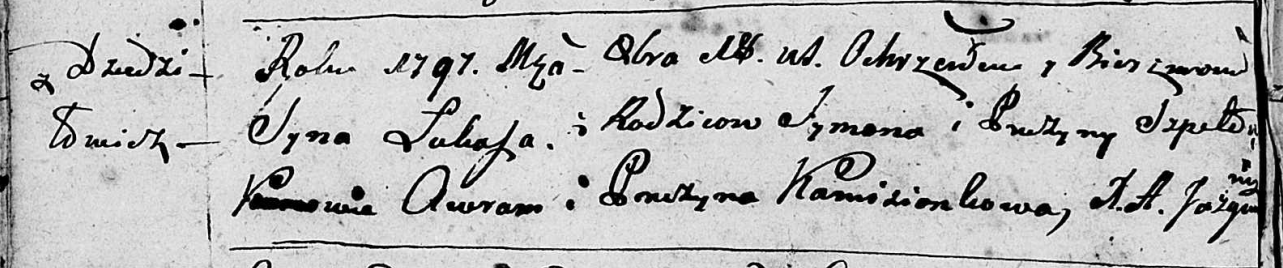 z Dziedzi-
łowicz -
Roku 1797. Mca 8bra 18. st. Ochrzciłem y Bierzmow
Syna Łukasza. z Rodzicow Symona i Pruzyny Szpeto
Kumowie Awram i Pruzyna Kamizionkowa,